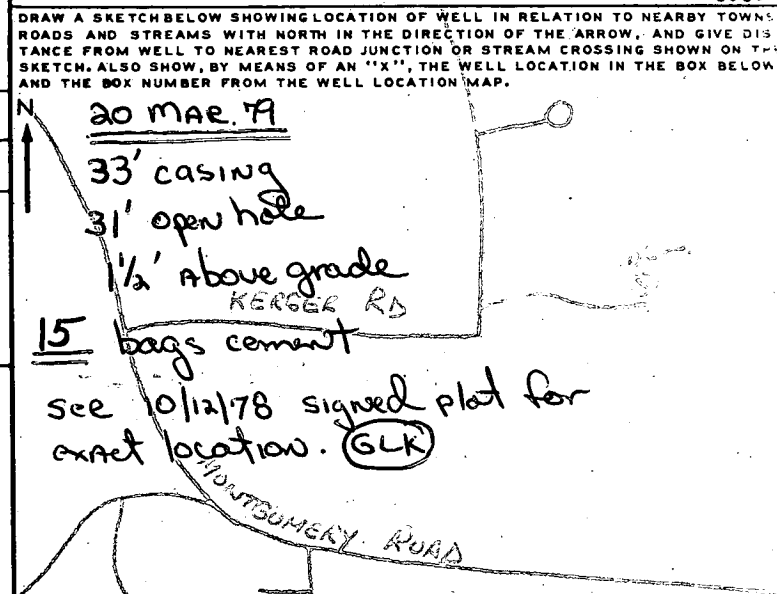 DRAW A SKETCH BELOW SHOWING LOCATION OF WELL IN RELATION TO NEARBY TOWNS
ROADS AND STREAMS WITH NORTH IN THE DIRECTION OF THE ARROW, AND GIVE DIS
TANCE FROM WELL TO NEAREST ROAD JUNCTION OR STREAM CROSSING SHOWN ON THE
SKETCH. ALSO SHOW, BY MEANS OF AN "X", THE WELL LOCATION IN THE BOX BELOW
AND THE BOX NUMBER FROM THE WELL LOCATION MAP.
N
20 MAR. 79
33' casing
31' open hole
1 1/2' Above grade
KERGER RD
15 bags cement
see 10/12/78 signed plat for
exact location. GLK
MONTGOMERY ROAD